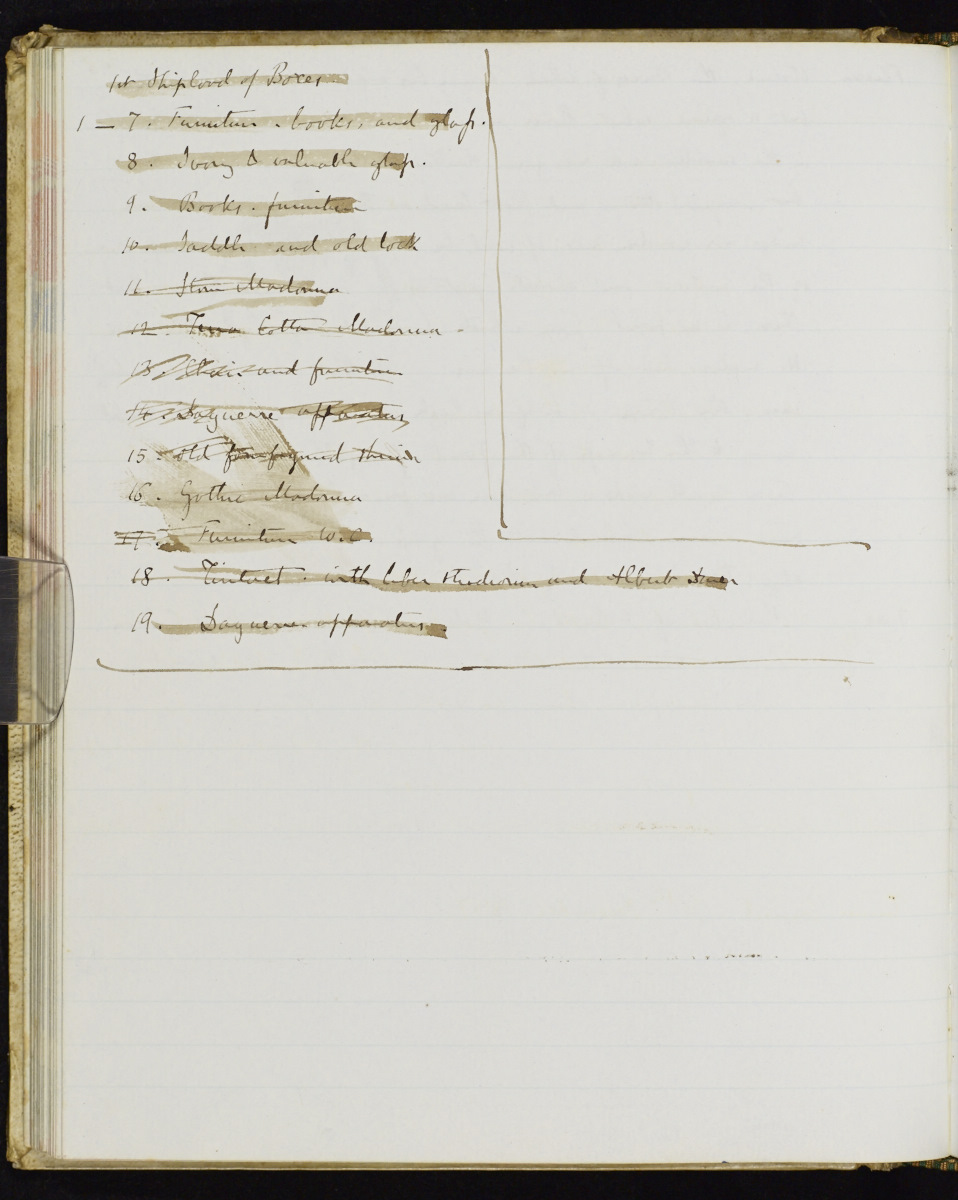 1st Shipload of Boxes
1 — 7. Furniture. books, and glass.
8. Ivory & valuable glass.
9. Books. furniture
10. Saddle and old lock
11. Stone Madonna
12. Terra Cotta Madonna
13. and furniture
14. Daguerre apparatus
15. old
16. Gothic Madonna
17. Furniture W.C.
18. Tintoret. with liber studiorum and Albert Durer
19. Daguerre apparatus.